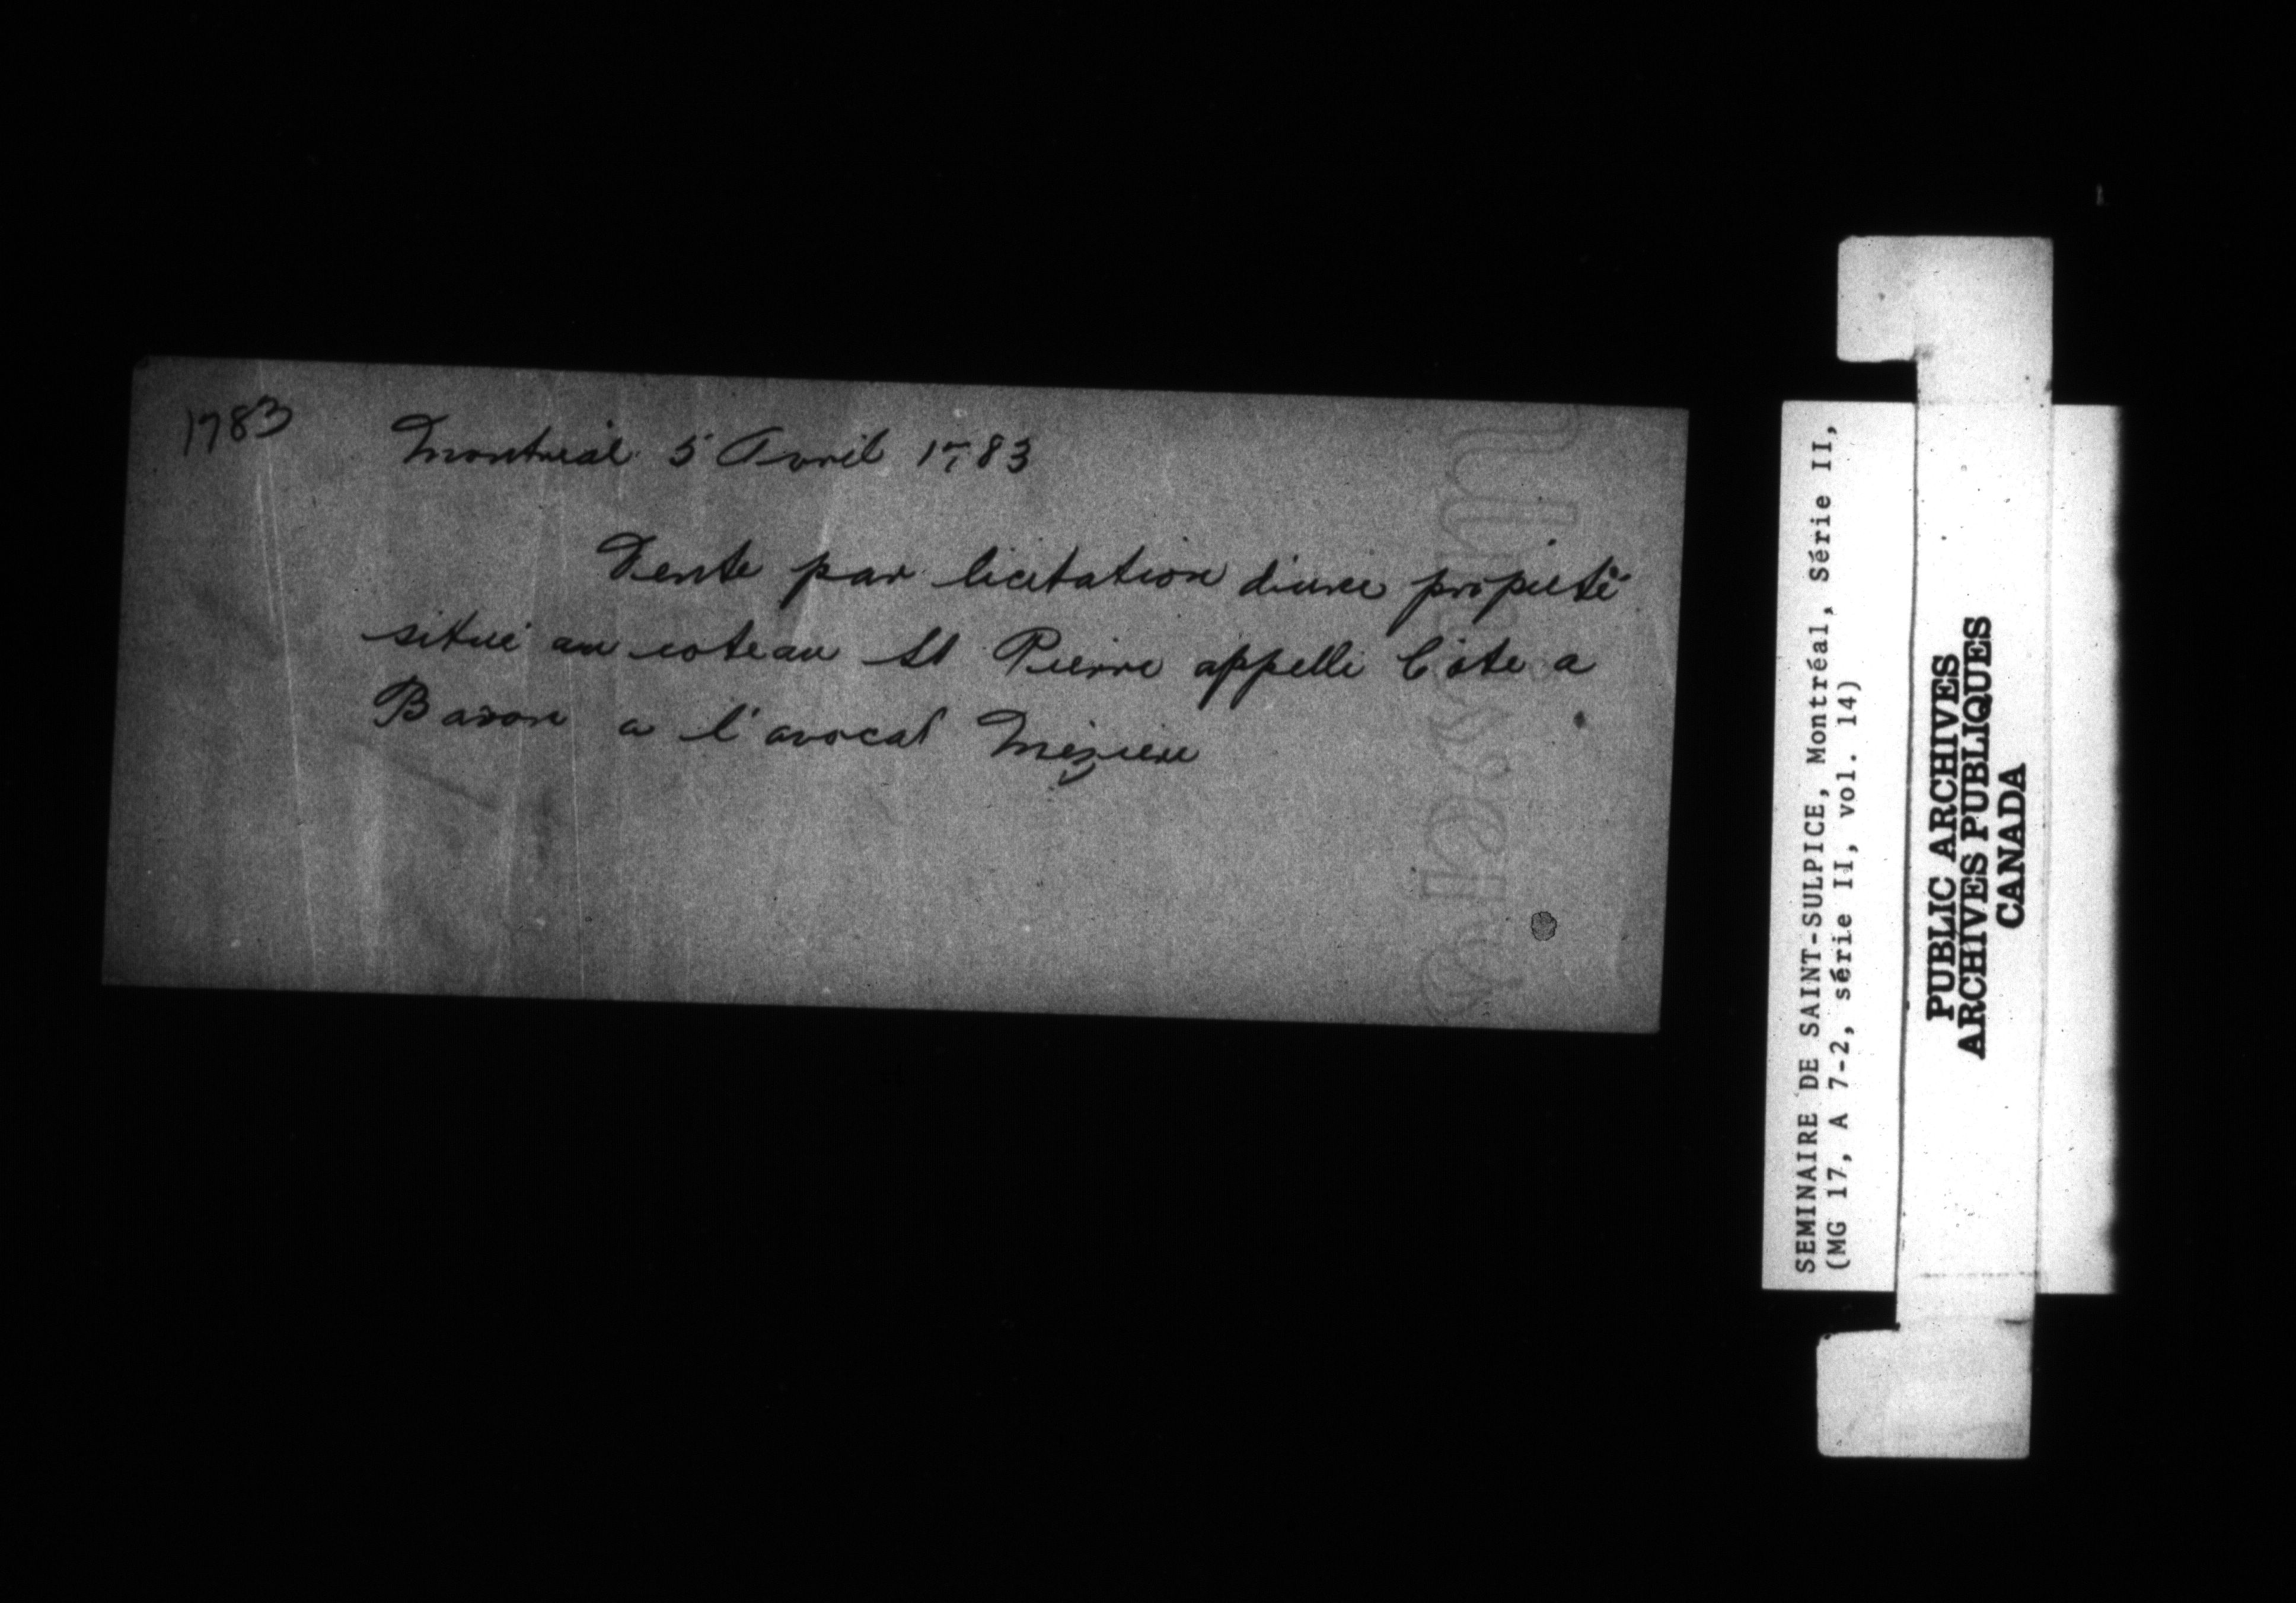 1783
Montreal 5 Avril 1783
Vente par licitation d'une propieté
situé au coteau St Pierre appellé Côte a
Baron a l'avocat Mézière
SEMINAIRE DE SAINT-SULPICE, Montréal, Série II,
(MG 17, A 7-2, série II, vol. 14)
PUBLIC ARCHIVES
ARCHIVES PUBLIQUES
CANADA